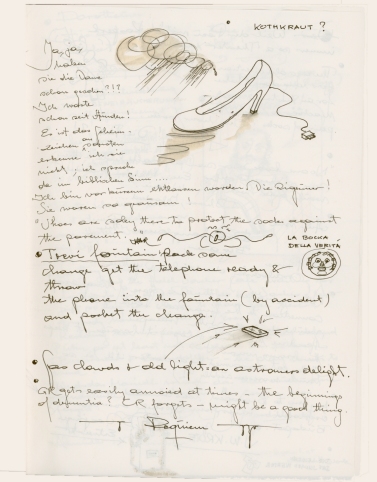 KOTHKRAUT?
Ja, ja,
haben
sie die Dame
schon gesehen?!?
Ich warte
schon seit Stunden!
Es ist das geheim-
zeichen
erkenne ich sie
nicht; ich sprach
da im biblischen Sinn....
Ich bin vor
worden. Die
Sie waren so grausam!
"Shoes are soley there to protect the socks against
the pavement."
LA BOCKA
DELLA VERITÀ
• Trevi fountain: Pack some
change get the telephone ready &
throw
the phone into the fountain (by accident)
and pocket the change.
• Gas clouds & old light: an astronomers delight.
• ER gets easily annoied at times – the beginnings
of dementia? ER forgets – might be a good thing.
Requiem